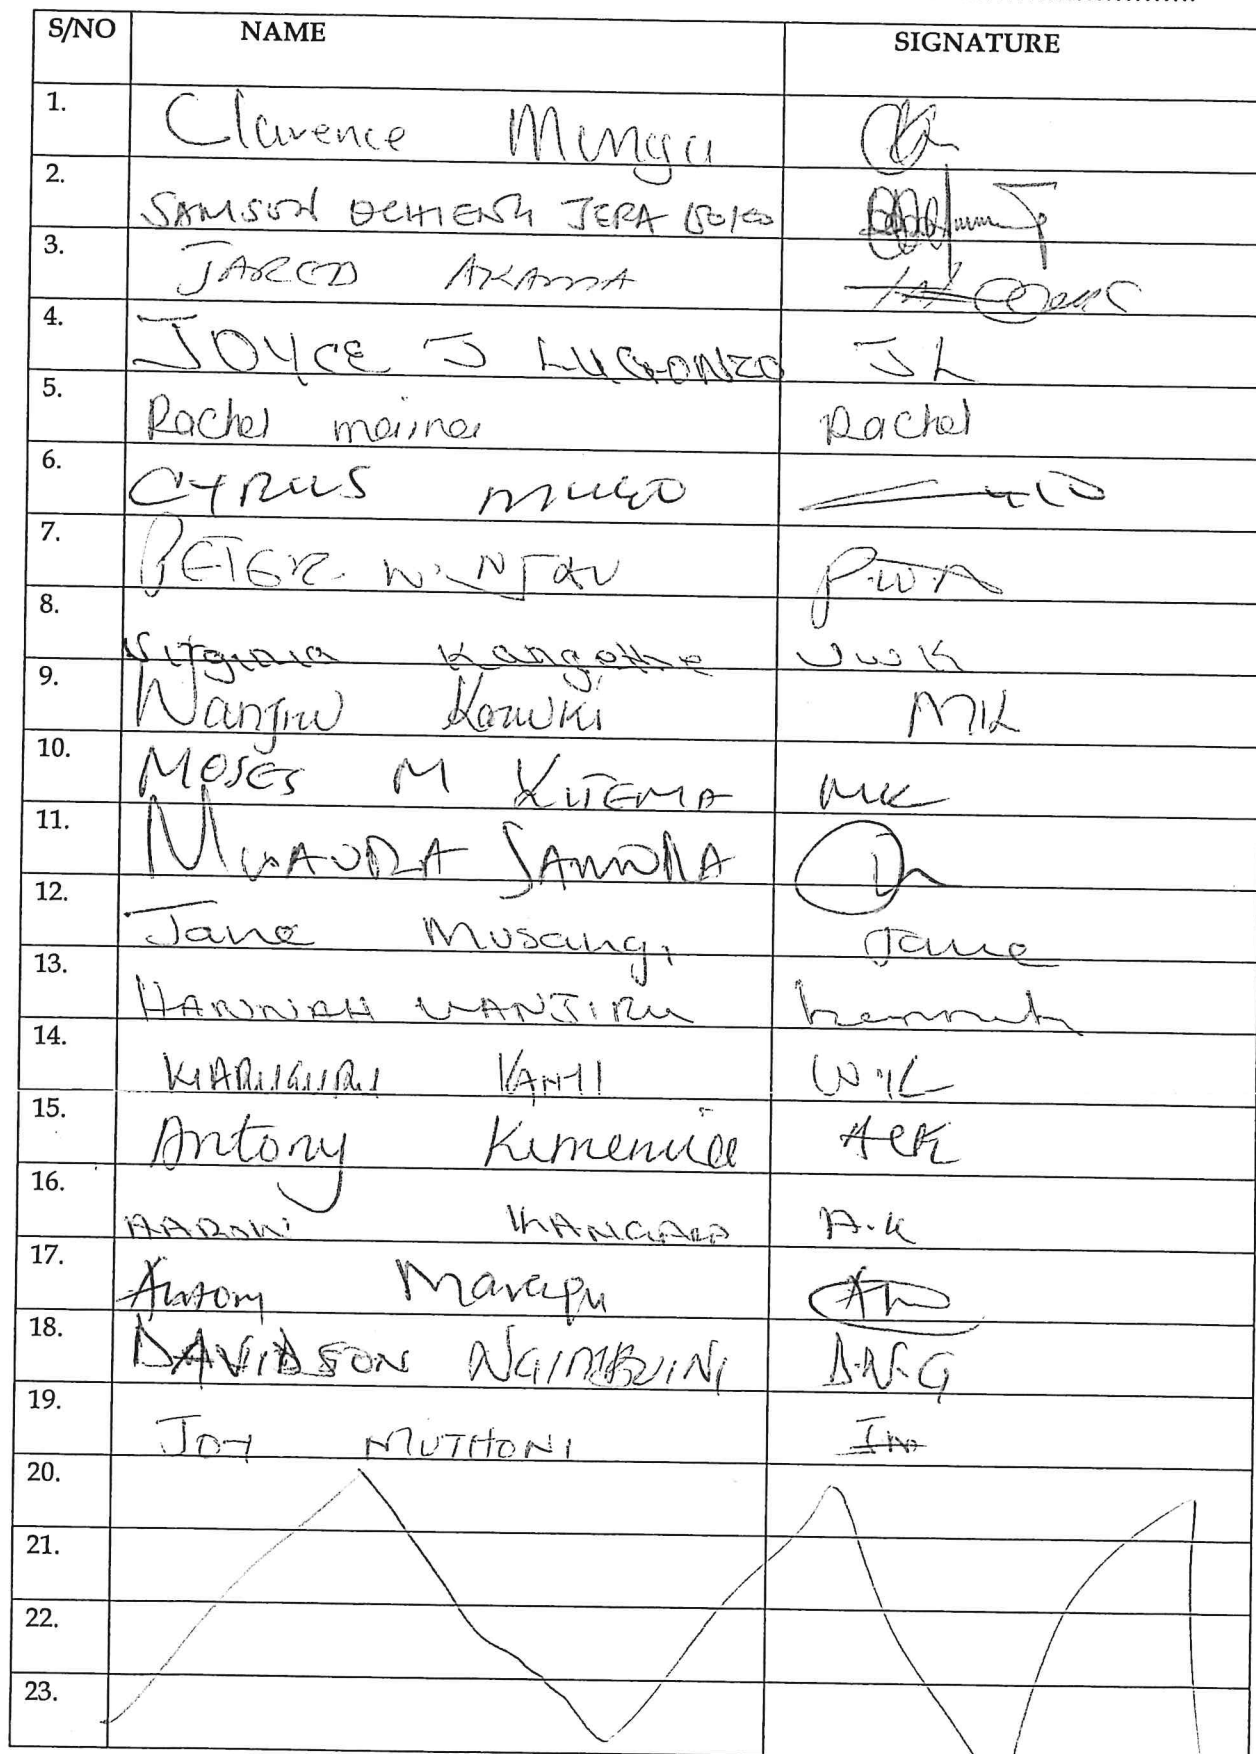 S/NO NAME SIGNATURE
1. Clarence Mungu
2. SAMSON OCHIENG JERA
3. JARED AKAMA
4. JOYCE J LUGONZO JL
5. Rachel maina Rachel
6. CYRUS MUGO
7. PETER W. NJAU P.W.N
8. Virginia Kangethe VWK
9. Wanjiru Kariuki MK
10. MOSES M KITEMA MK
11. MWAURA SANDRA
12. Jane Musangi Jane
13. HANNAH WANJIRU hannah
14. KIARUGURU KAHII WK
15. Antony Kimemia ACK
16. AARON KANGARA A.K
17. Antony
18. DAVIDSON D.N.G
19. JOY MUTHONI JM
20.
21.
22.
23.